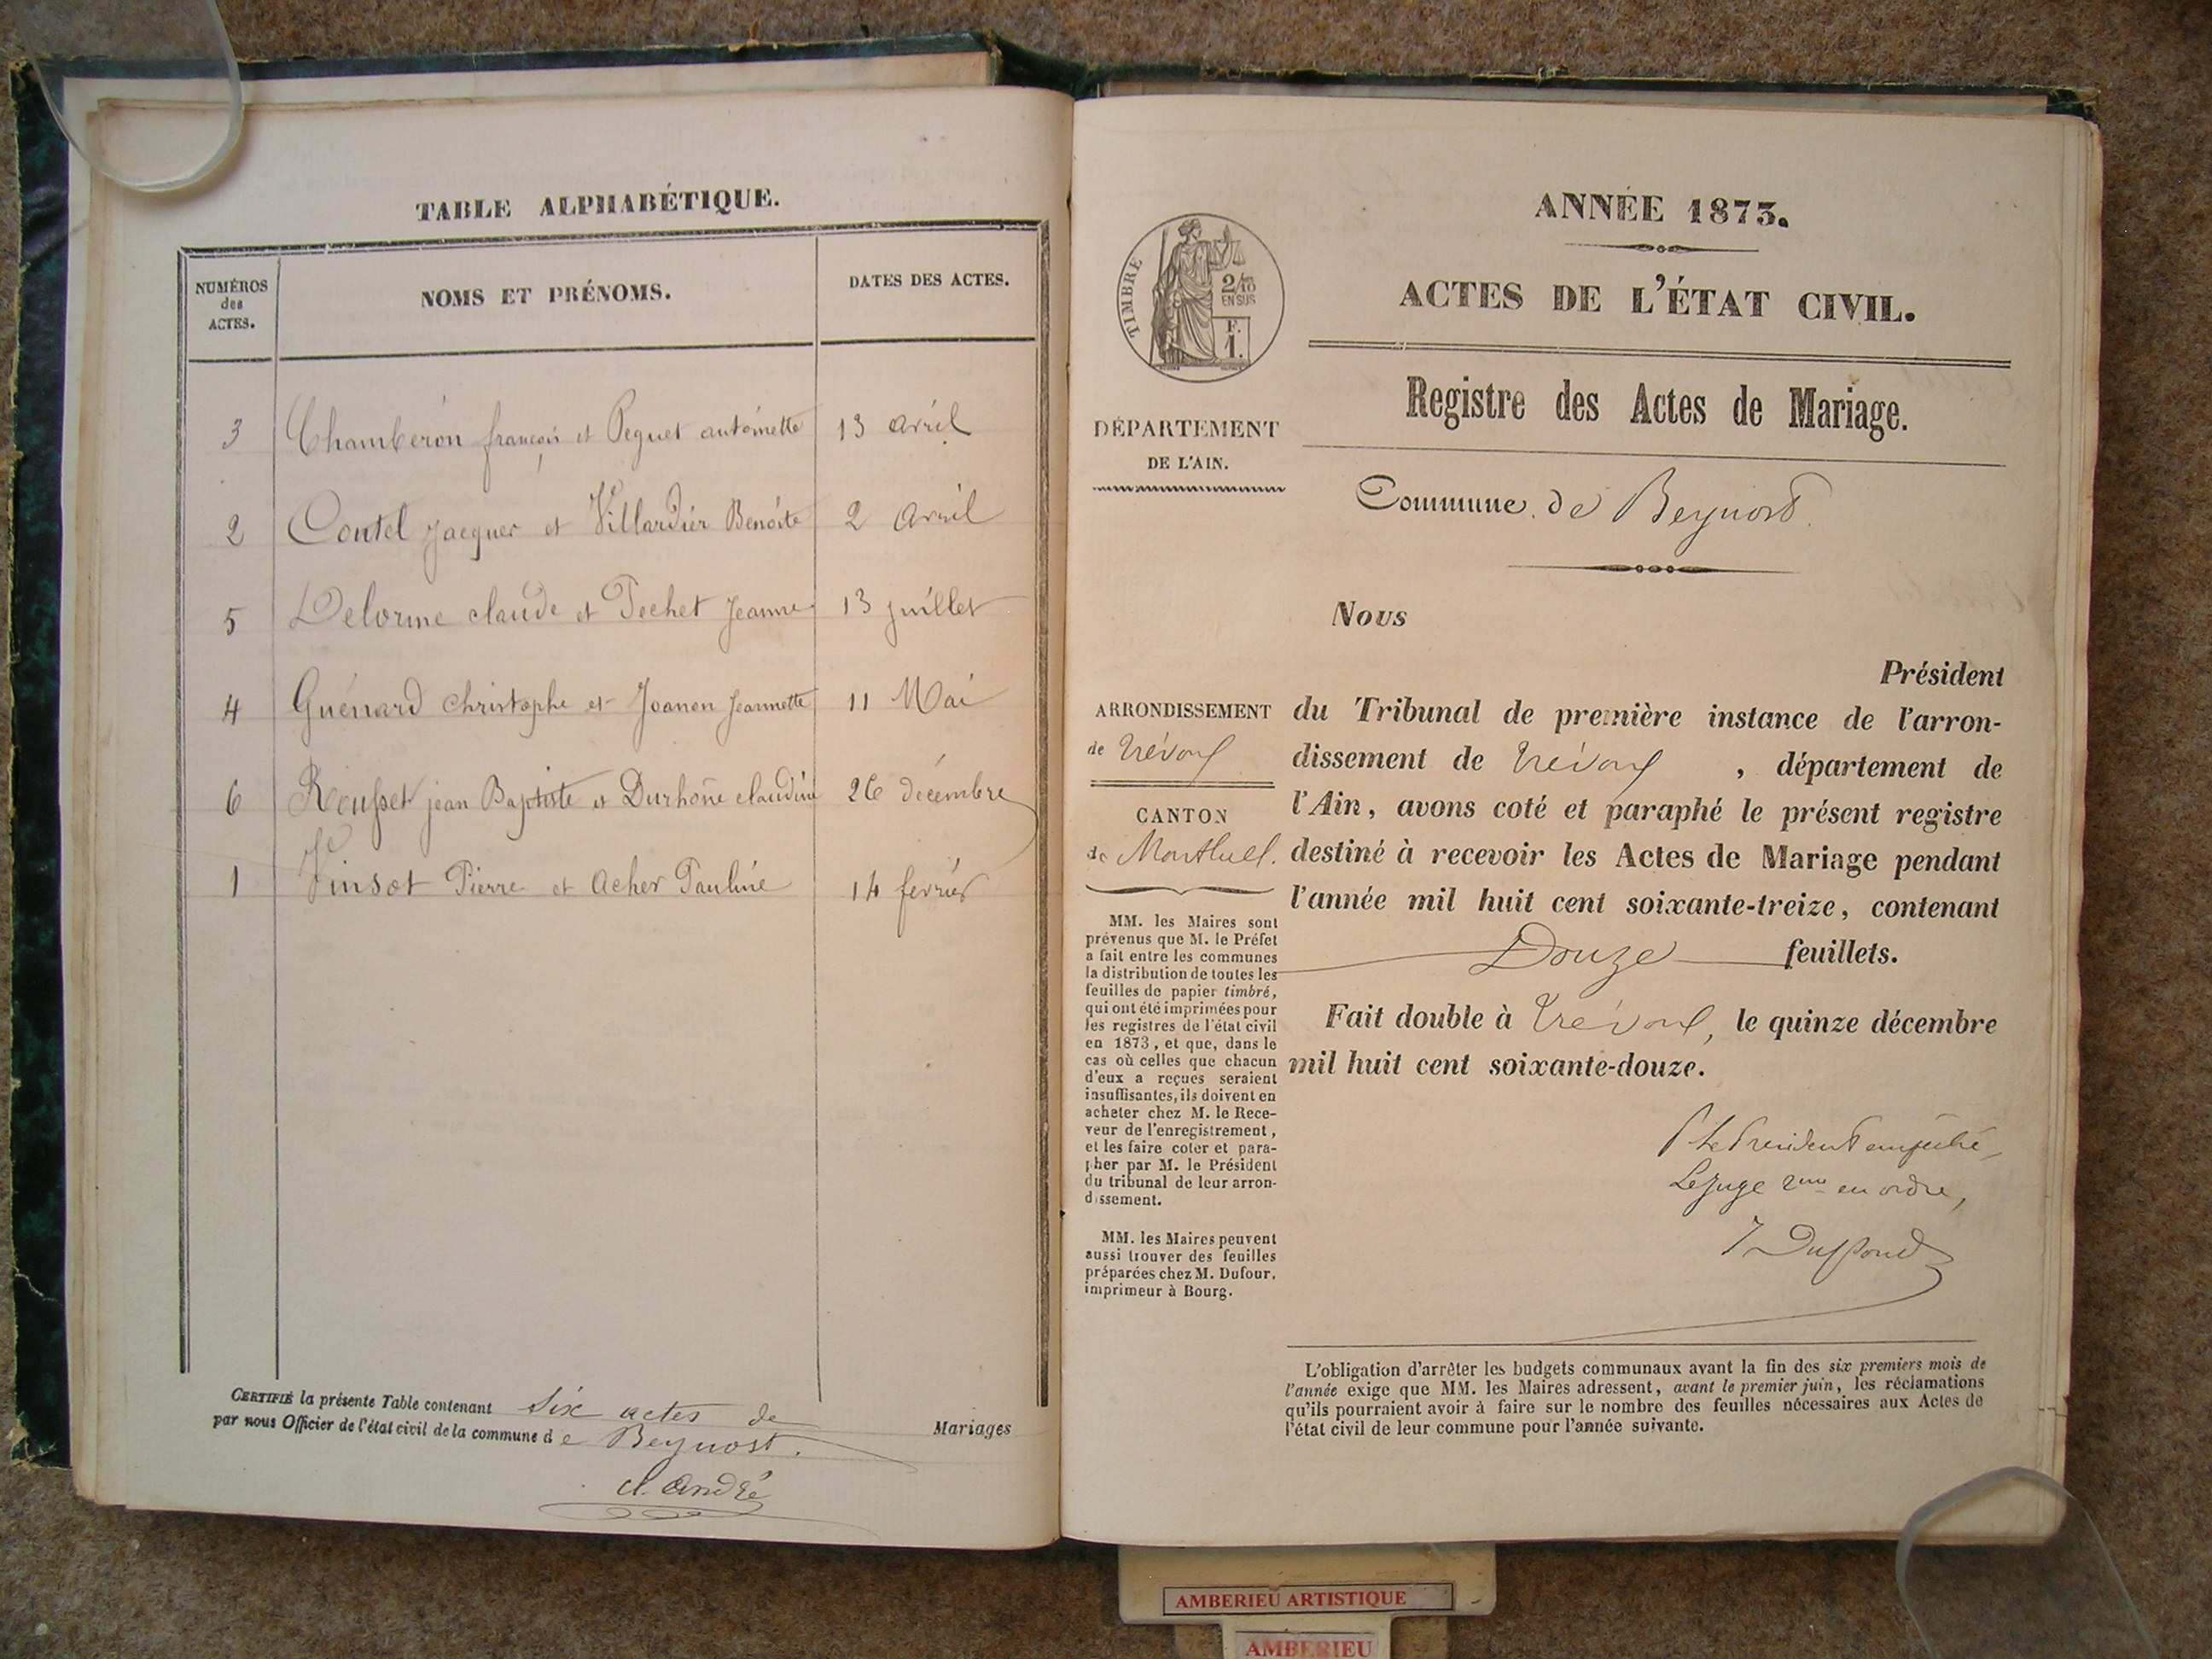 TABLE ALPHABÉTIQUE.
NUMÉROS
des
ACTES.
NOMS ET PRÉNOMS.
DATES DES ACTES.
3 Chamberon françois et Peguet antoinette 13 avril
2 Contel Jacques et Villardier Benoite 2 avril
5 Delorme claude et Pechet Jeanne 13 juillet
4 Guénard Christophe et Joanon Jeannette 11 Mai
6 Rousset jean Baptiste et Durhône claudine 26 décembre
1 Vinsot Pierre et Acher Pauline 14 fevrier
CERTIFIÉ la présente Table contenant six actes de Mariages
par nous Officier de l'état civil de la commune de Beynost.
cl. André
TIMBRE
2/10
EN SUS
F.
1.
DÉPARTEMENT
DE L'AIN.
ARRONDISSEMENT
de Trévoux
CANTON
de Montluel.
MM. les Maires sont
prévenus que M. le Préfet
a fait entre les communes
la distribution de toutes les
feuilles de papier timbré,
qui ont été imprimées pour
les registres de l'état civil
en 1873, et que, dans le
cas où celles que chacun
d'eux a reçues seraient
insuffisantes, ils doivent en
acheter chez M. le Rece-
veur de l'enregistrement,
et les faire coter et para-
pher par M. le Président
du tribunal de leur arron-
dissement.
MM. les Maires peuvent
aussi trouver des feuilles
préparées chez M. Dufour,
imprimeur à Bourg.
ANNÉE 1873.
ACTES DE L'ÉTAT CIVIL.
Registre des Actes de Mariage.
Commune de Beynost.
Nous
Président
du Tribunal de première instance de l'arron-
dissement de Trévoux, département de
l'Ain, avons coté et paraphé le présent registre
destiné à recevoir les Actes de Mariage pendant
l'année mil huit cent soixante-treize, contenant
Douze feuillets.
Fait double à Trévoux, le quinze décembre
mil huit cent soixante-douze.
P le President empêché,
Le Juge 2me en ordre,
L'obligation d'arrêter les budgets communaux avant la fin des six premiers mois de
l'année exige que MM. les Maires adressent, avant le premier juin, les réclamations
qu'ils pourraient avoir à faire sur le nombre des feuilles nécessaires aux Actes de
l'état civil de leur commune pour l'année suivante.
AMBERIEU ARTISTIQUE
AMBERIEU